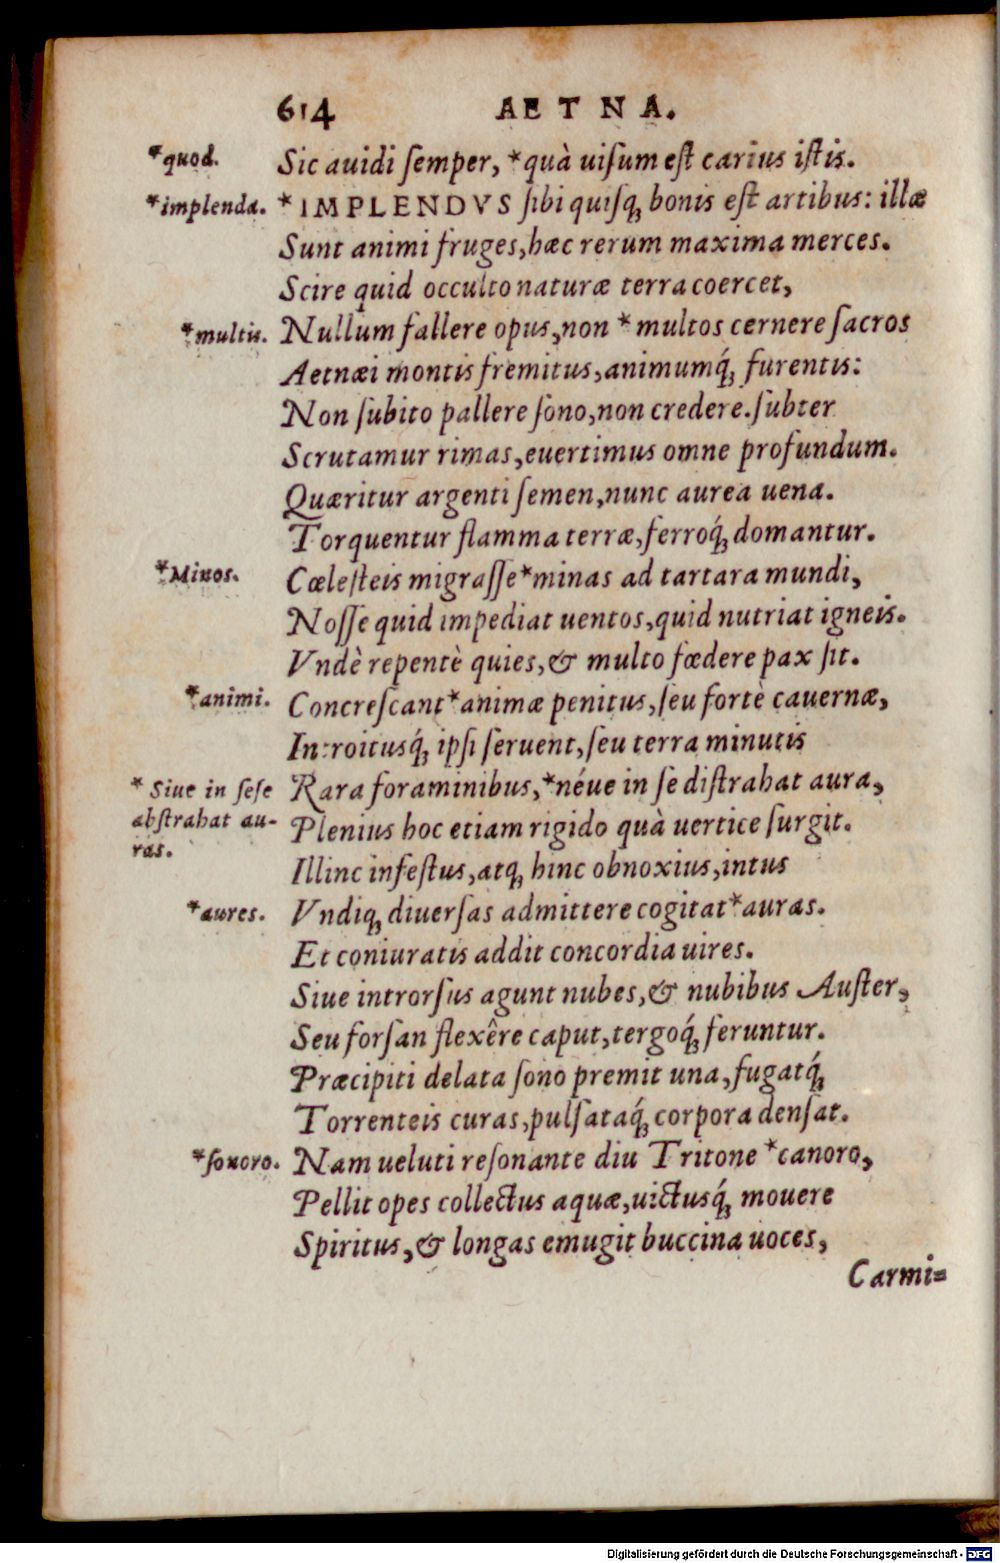 614 AETNA.
*quod. Sic auidi ſemper, *quà uiſum eſt carius iſtis.
*implenda. *IMPLENDVS ſibi quiſq; bonis eſt artibus: illæ
Sunt animi fruges, hæc rerum maxima merces.
Scire quid occulto naturæ terra coercet,
*multis. Nullum fallere opus, non *multos cernere ſacros
Aetnæi montis fremitus, animumq́; furentis:
Non ſubito pallere ſono, non credere. ſubter
Scrutamur rimas, euertimus omne profundum.
Quæritur argenti ſemen, nunc aurea uena.
Torquentur flamma terræ, ferroq́; domantur.
*Minos. Cœleſteis migraſſe *minas ad tartara mundi,
Noſſe quid impediat uentos, quid nutriat igneis.
Vndè repentè quies, & multo fœdere pax ſit.
*animi. Concreſcant *animæ penitus, ſeu fortè cauernæ,
Introitusq́; ipſi ſeruent, ſeu terra minutis
* Siue in ſeſe Rara foraminibus, *néue in ſe diſtrahat aura,
abſtrahat au- Plenius hoc etiam rigido quà uertice ſurgit.
ras. Illinc infeſtus, atq; hinc obnoxius, intus
*aures. Vndiq; diuerſas admittere cogitat *auras.
Et coniuratis addit concordia uires.
Siue introrſus agunt nubes, & nubibus Auſter,
Seu forſan flexêre caput, tergoq́; feruntur.
Præcipiti delata ſono premit una, fugatq́;
Torrenteis curas, pulſataq́; corpora denſat.
*ſonoro. Nam ueluti reſonante diu Tritone *canoro,
Pellit opes collectus aquæ, uictusq́; mouere
Spiritus, & longas emugit buccina uoces,
Carmi=
Digitalisierung gefördert durch die Deutsche Forschungsgemeinschaft - DFG